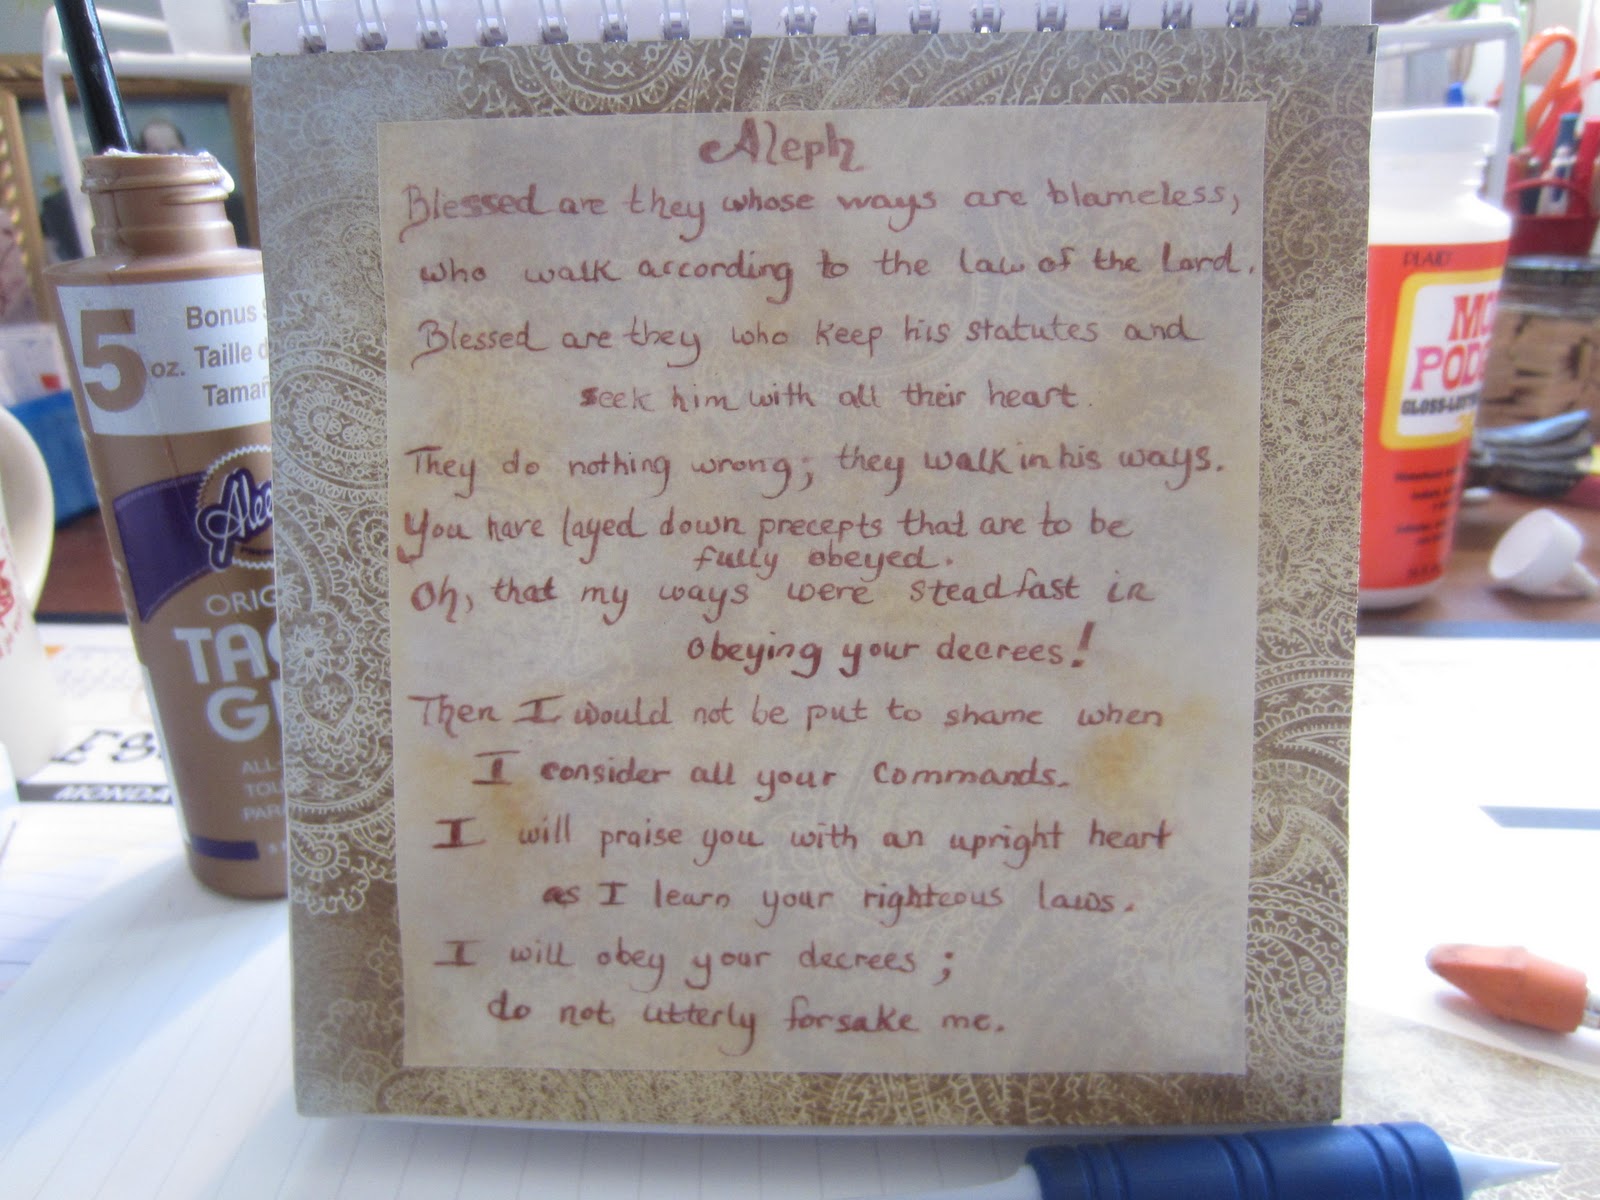 Aleph
Blessed are they whose ways are blameless,
who walk according to the law of the Lord.
Blessed are they who keep his statutes and
seek him with all their heart.
They do nothing wrong; they walk in his ways.
You have layed down precepts that are to be
fully obeyed.
Oh, that my ways were steadfast in
obeying your decrees!
Then I would not be put to shame when
I consider all your commands.
I will praise you with an upright heart
as I learn your righteous laws.
I will obey your decrees;
do not utterly forsake me.
5 oz.
Bonus
Taille
Alee
ORIG
TAC
ALL-
TOU
PLAID
MO
POD
GLOSS-LUST
MONDA